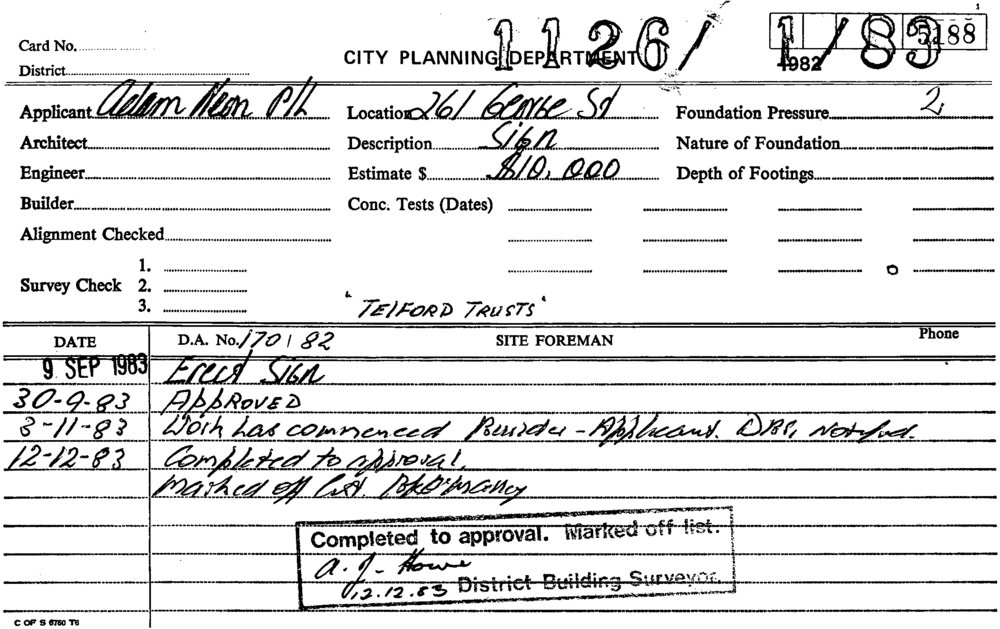 Card No.
1126/ 1/83
5188
CITY PLANNING DEPARTMENT
1982
District
Applicant Adam Neon P/L Location 261 George St Foundation Pressure 2
Architect Description Sign Nature of Foundation
Engineer Estimate $ $10,000 Depth of Footings
Builder Conc. Tests (Dates)
Alignment Checked
1.
Survey Check 2.
3.
"TELFORD TRUSTS"
DATE D.A. No. 170/82 SITE FOREMAN Phone
9 SEP 1983 Erect Sign
30-9-83 APPROVED
3-11-83 Work has commenced Builder - Applicant. DBS, Notified.
12-12-83 Completed to approval.
Marked off list.
Completed to approval. Marked off list.
A. J. Howe
12.12.83 District Building Surveyor.
C OF S 6760 T6